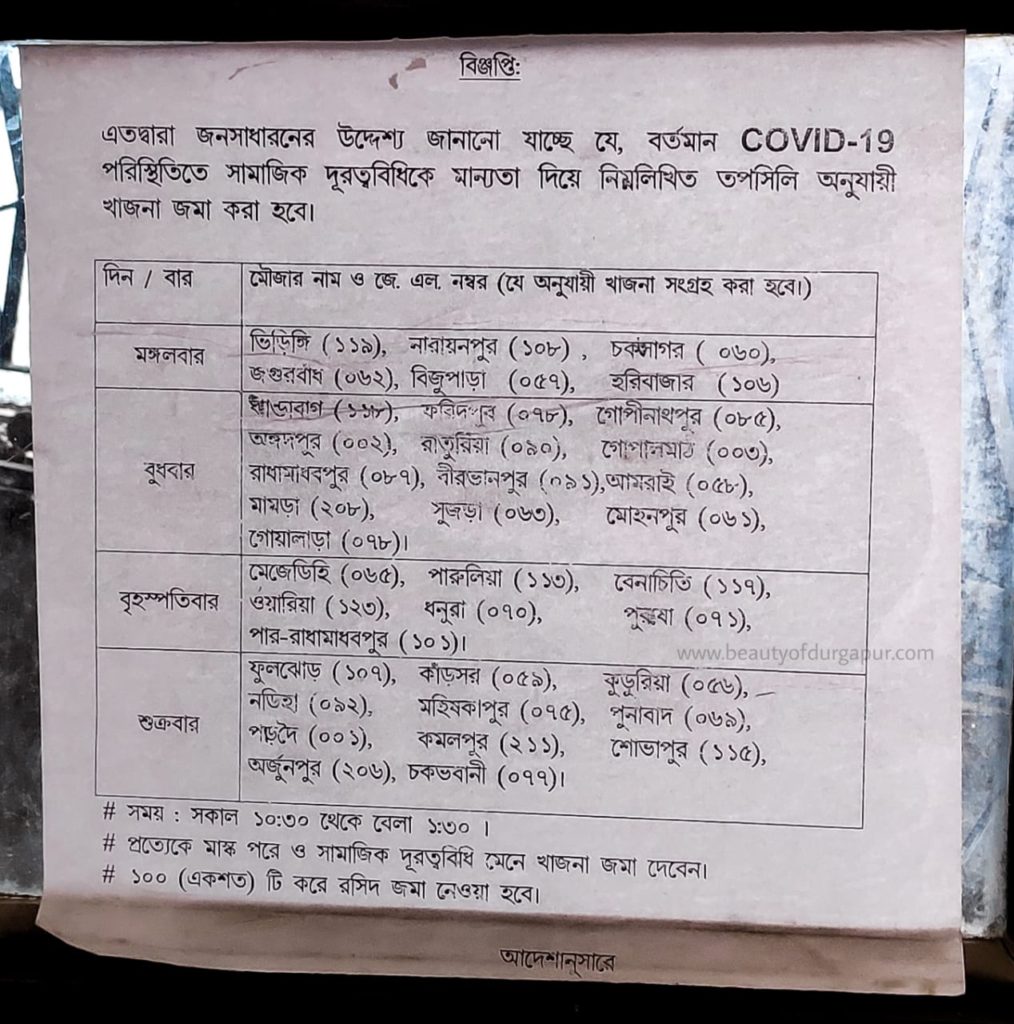 বিজ্ঞপ্তি:
এতদ্বারা জনসাধারনের উদ্দেশ্য জানানো যাচ্ছে যে, বর্তমান COVID-19
পরিস্থিতিতে সামাজিক দূরত্ববিধিকে মান্যতা দিয়ে নিম্নলিখিত তপসিলি অনুযায়ী
খাজনা জমা করা হবে।
দিন / বার মৌজার নাম ও জে. এল. নম্বর (যে অনুযায়ী খাজনা সংগ্রহ করা হবে।)
মঙ্গলবার
ভিড়িঙ্গি (১১৯), নারায়নপুর (১০৮) , চকসাগর ( ০৬০),
জগুরবাঁধ (০৬২), বিজুপাড়া (০৫৭), হরিবাজার (১০৬)
বুধবার
খান্ডাবাগ (১১৮), ফরিদপুর (০৭৮), গোপীনাথপুর (০৮৫),
অঙ্গদপুর (০০২), রাতুরিয়া (০৯০), গোপালমাঠ (০০৩),
রাধামাধবপুর (০৮৭), বীরভানপুর (০৯১),আমরাই (০৫৮),
মামড়া (২০৮), সুজড়া (০৬৩), মোহনপুর (০৬১),
গোয়ালাড়া (০৭৮)।
বৃহস্পতিবার
মেজেডিহি (০৬৫), পারুলিয়া (১১৩), বেনাচিতি (১১৭),
ওয়ারিয়া (১২৩), ধনুরা (০৭০), পুরুষা (০৭১),
পার-রাধামাধবপুর (১০১)।
শুক্রবার
ফুলঝোড় (১০৭), কাঁড়সর (০৫৯), কুড়ুরিয়া (০৫৬),
নডিহা (০৯২), মহিষকাপুর (০৭৫), পুনাবাদ (০৬৯),
পাড়দৈ (০০১), কমলপুর (২১১), শোভাপুর (১১৫),
অর্জুনপুর (২০৬), চকভবানী (০৭৭)।
# সময় : সকাল ১০:৩০ থেকে বেলা ১:৩০ ।
# প্রত্যেকে মাস্ক পরে ও সামাজিক দূরত্ববিধি মেনে খাজনা জমা দেবেন।
# ১০০ (একশত) টি করে রসিদ জমা নেওয়া হবে।
আদেশানুসারে
www.beautyofdurgapur.com